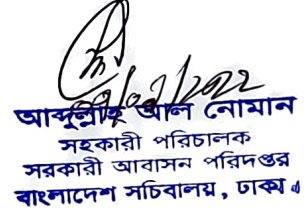 আব্দুল্লাহ আল নোমান
সহকারী পরিচালক
সরকারী আবাসন পরিদপ্তর
বাংলাদেশ সচিবালয়, ঢাকা।